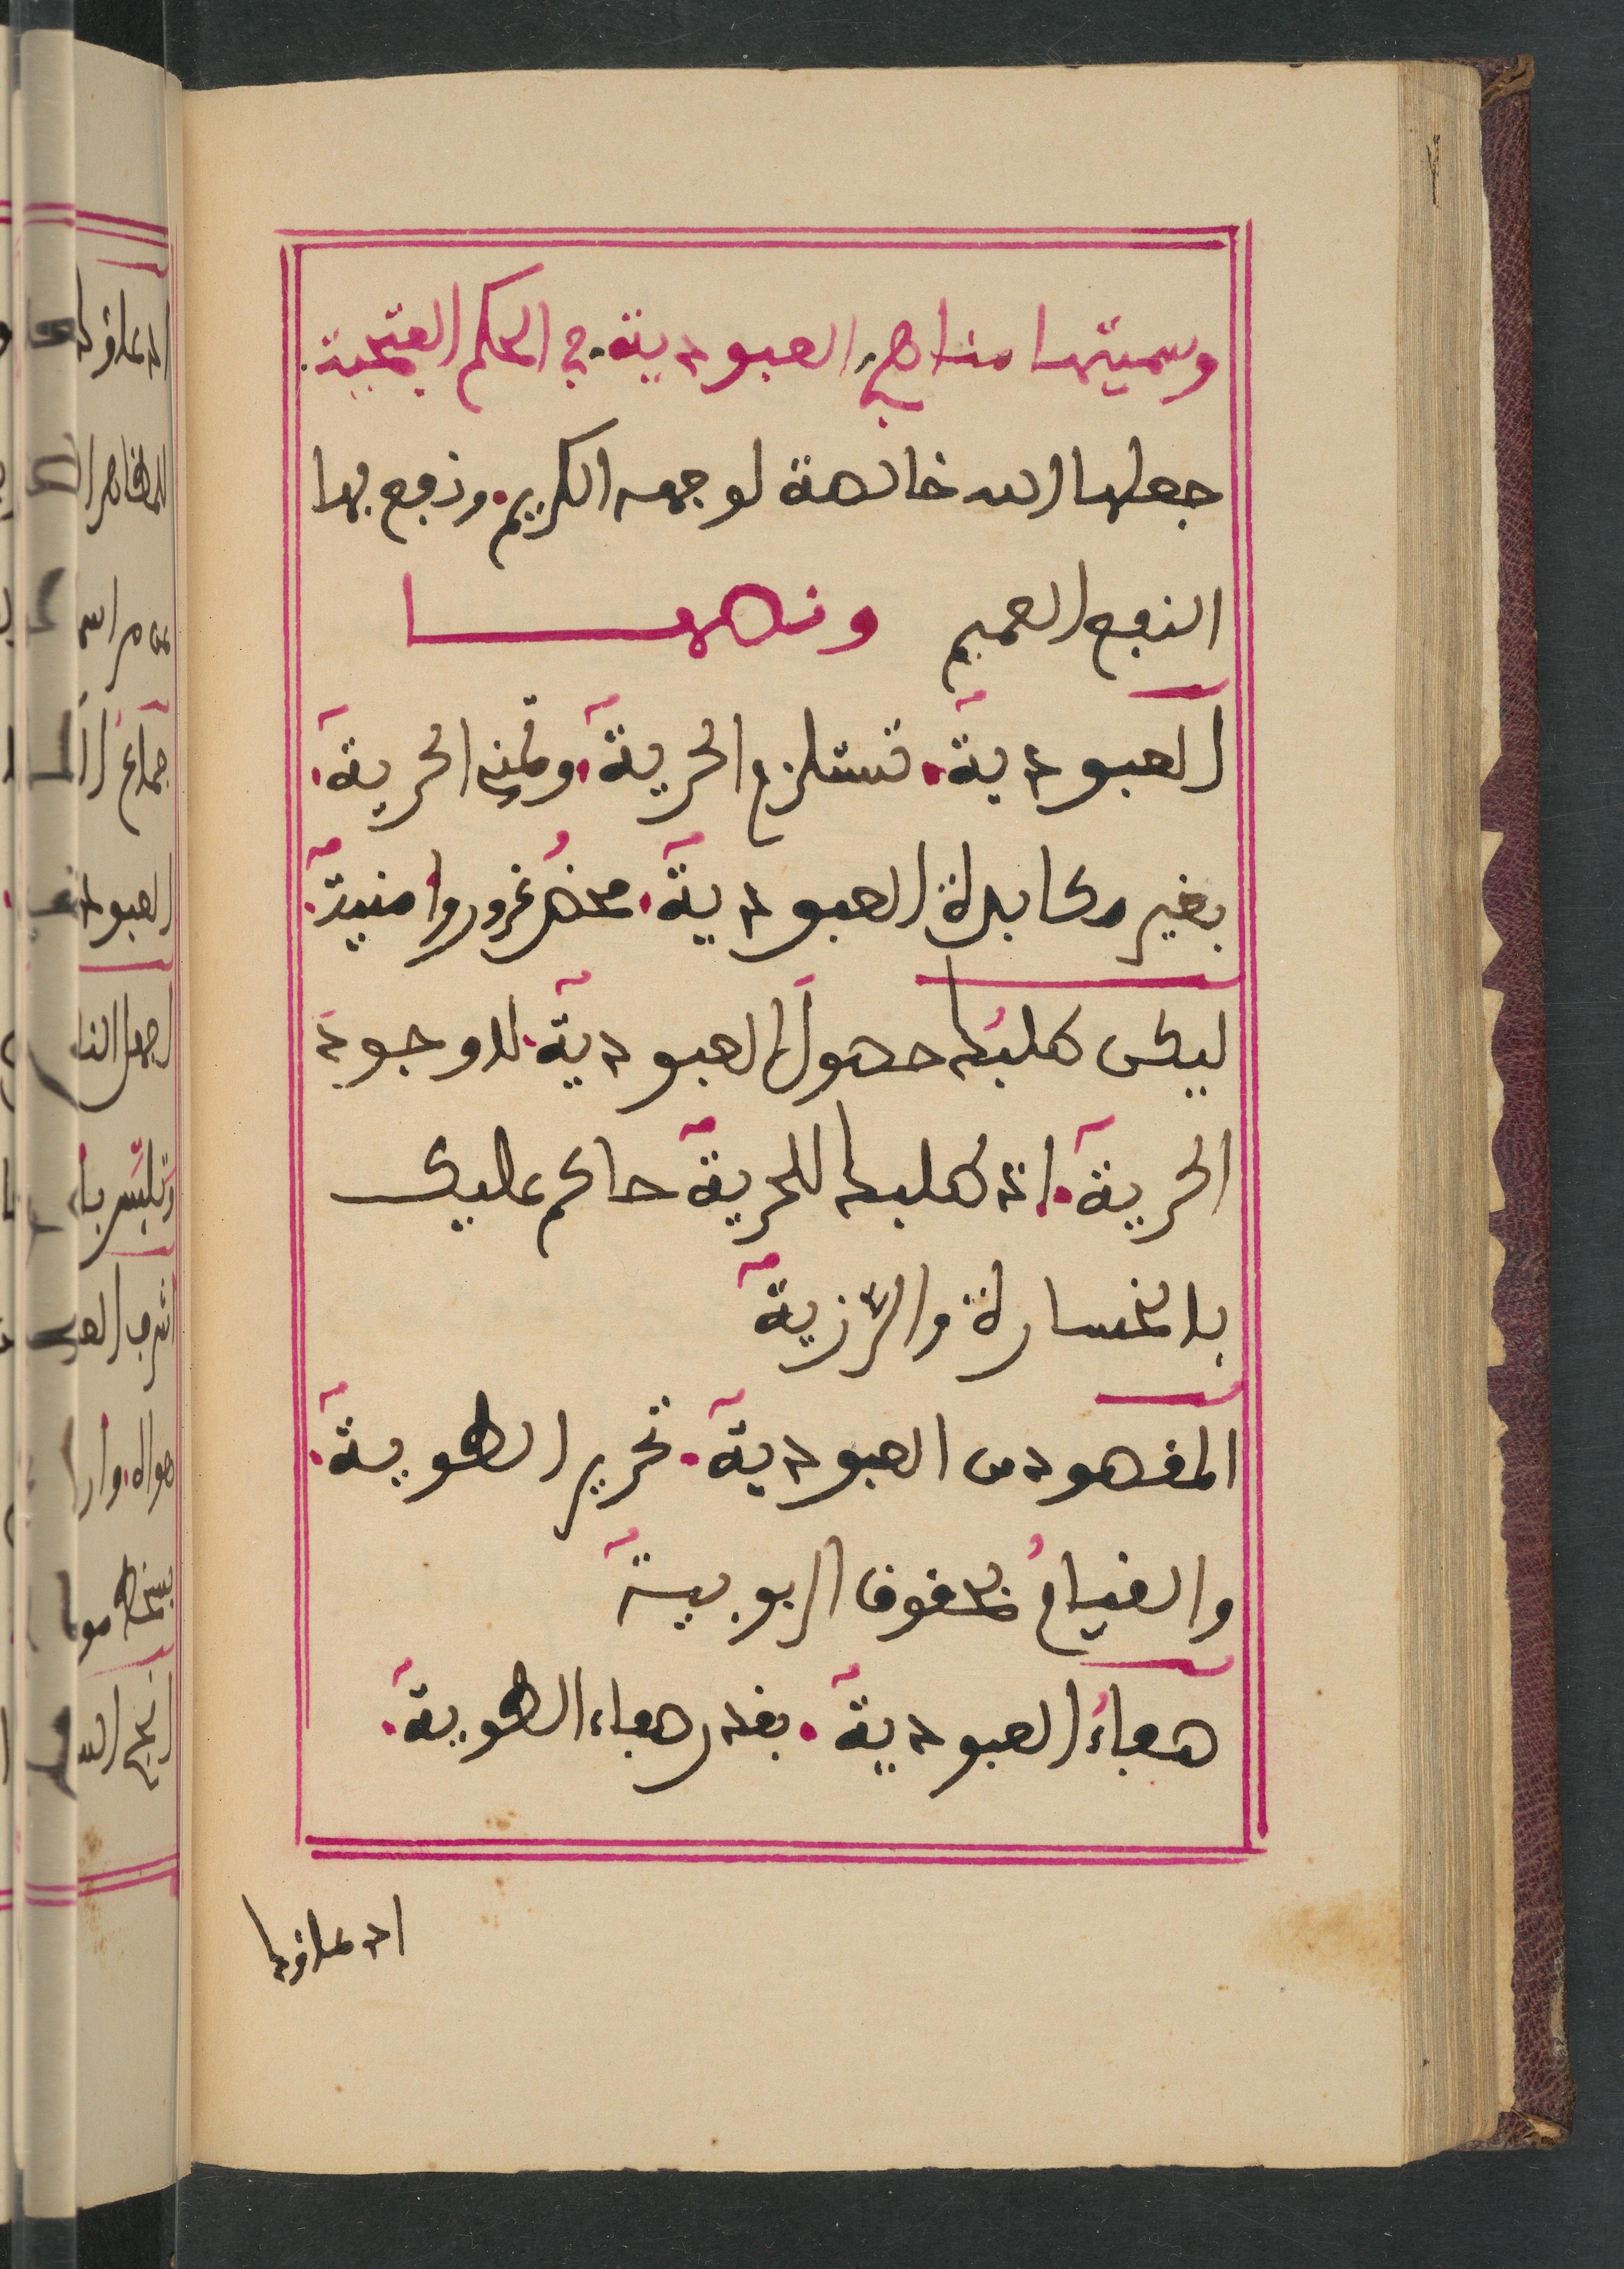 وسميتها مناهج العبودية. في الحكم الفتحية.
جعلها الله خالصة لوجهه الكريم. ونفع بها
النفع العميم ونصهــا
العبودية. تستلزم الحرية. وتمني الحرية.
بغير مكابدة العبودية. محض غرور وامنية.
ليكن طلبك حصول العبودية. لا وجود
الحرية. اذ طلبك للحرية حاكم عليك
بالخسارة والرزية
المقصود من العبودية. تحرير الطوية.
والقيام بحقوق الربوبية
صفاء العبودية. بقدر صفاء الطوية.
ادعاؤك